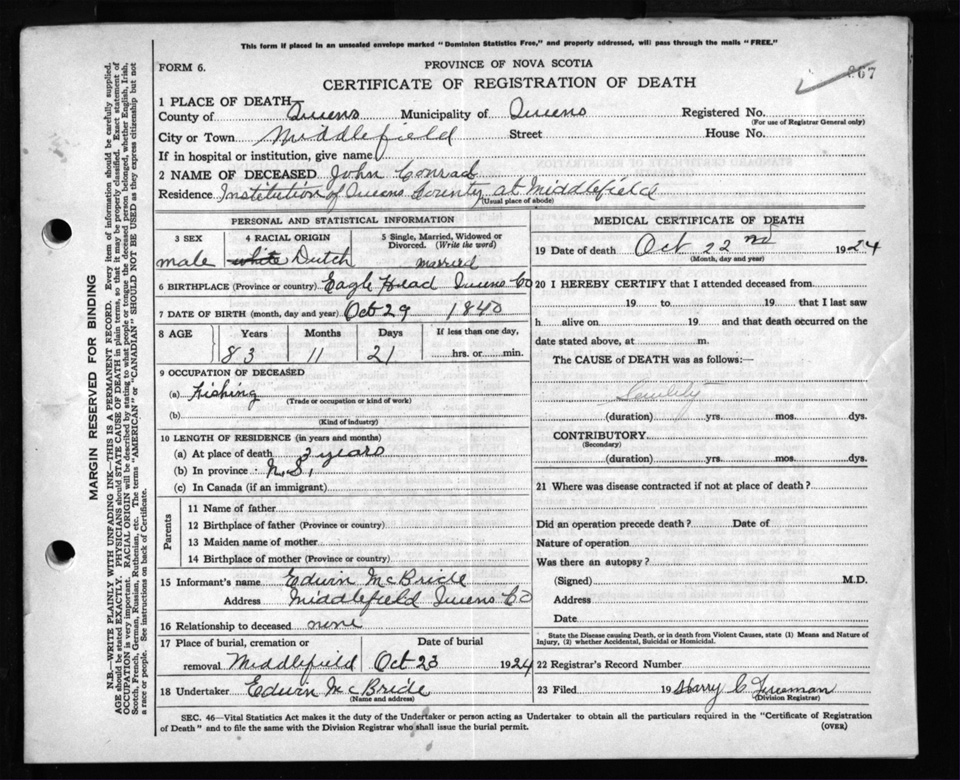 This form if placed in an unsealed envelope marked "Dominion Statistics Free," and properly addressed, will pass through the mails "FREE."
FORM 6.
PROVINCE OF NOVA SCOTIA
67
CERTIFICATE OF REGISTRATION OF DEATH
1 PLACE OF DEATH—
County of Queens Municipality of Queens Registered No.
(For use of Registrar General only)
City or Town Middlefield Street House No.
If in hospital or institution, give name
2 NAME OF DECEASED John Conrad
Residence Institution of Queens County at Middlefield
(Usual place of abode)
PERSONAL AND STATISTICAL INFORMATION
3 SEX 4 RACIAL ORIGIN 5 Single, Married, Widowed or Divorced. (Write the word)
male white Dutch married
6 BIRTHPLACE (Province or country) Eagle Head Queens Co
7 DATE OF BIRTH (month, day and year) Oct 29 1840
8 AGE Years Months Days If less than one day,
83 11 21 hrs. or min.
9 OCCUPATION OF DECEASED
(a) Fishing
(Trade or occupation or kind of work)
(b)
(Kind of industry)
10 LENGTH OF RESIDENCE (in years and months)
(a) At place of death 3 years
(b) In province N.S.
(c) In Canada (if an immigrant)
Parents
11 Name of father
12 Birthplace of father (Province or country)
13 Maiden name of mother
14 Birthplace of mother (Province or country)
15 Informant's name Edwin McBride
Address Middlefield Queens Co
16 Relationship to deceased none
17 Place of burial, cremation or Date of burial
removal Middlefield Oct 23 1924
18 Undertaker Edwin McBride
(Name and address)
MEDICAL CERTIFICATE OF DEATH
19 Date of death Oct 22nd 1924
(Month, day and year)
20 I HEREBY CERTIFY that I attended deceased from
19 to 19 that I last saw
h alive on 19 and that death occurred on the
date stated above, at m.
The CAUSE of DEATH was as follows:—
Senility
(duration) yrs. mos. dys.
CONTRIBUTORY
(Secondary)
(duration) yrs. mos. dys.
21 Where was disease contracted if not at place of death?
Did an operation precede death? Date of
Nature of operation
Was there an autopsy?
(Signed) M.D.
Address
Date
State the Disease causing Death, or in death from Violent Causes, state (1) Means and Nature of
Injury, (2) whether Accidental, Suicidal or Homicidal.
22 Registrar's Record Number
23 Filed 19 Harry C Freeman
(Division Registrar)
SEC. 46—Vital Statistics Act makes it the duty of the Undertaker or person acting as Undertaker to obtain all the particulars required in the "Certificate of Registration
of Death" and to file the same with the Division Registrar who shall issue the burial permit. (OVER)
MARGIN RESERVED FOR BINDING
N.B.—WRITE PLAINLY WITH UNFADING INK—THIS IS A PERMANENT RECORD. Every item of information should be carefully supplied.
AGE should be stated EXACTLY. PHYSICIANS should STATE CAUSE OF DEATH in plain terms, so that it may be properly classified. Exact statement of
OCCUPATION is very important. RACIAL ORIGIN will be described by stating to what people or tongue the deceased person belonged, whether English, Irish,
Scotch, French, German, Russian, Ruthenian, etc. The terms "AMERICAN" or "CANADIAN" SHOULD NOT BE USED as they express citizenship but not
a race or people. See instructions on back of Certificate.